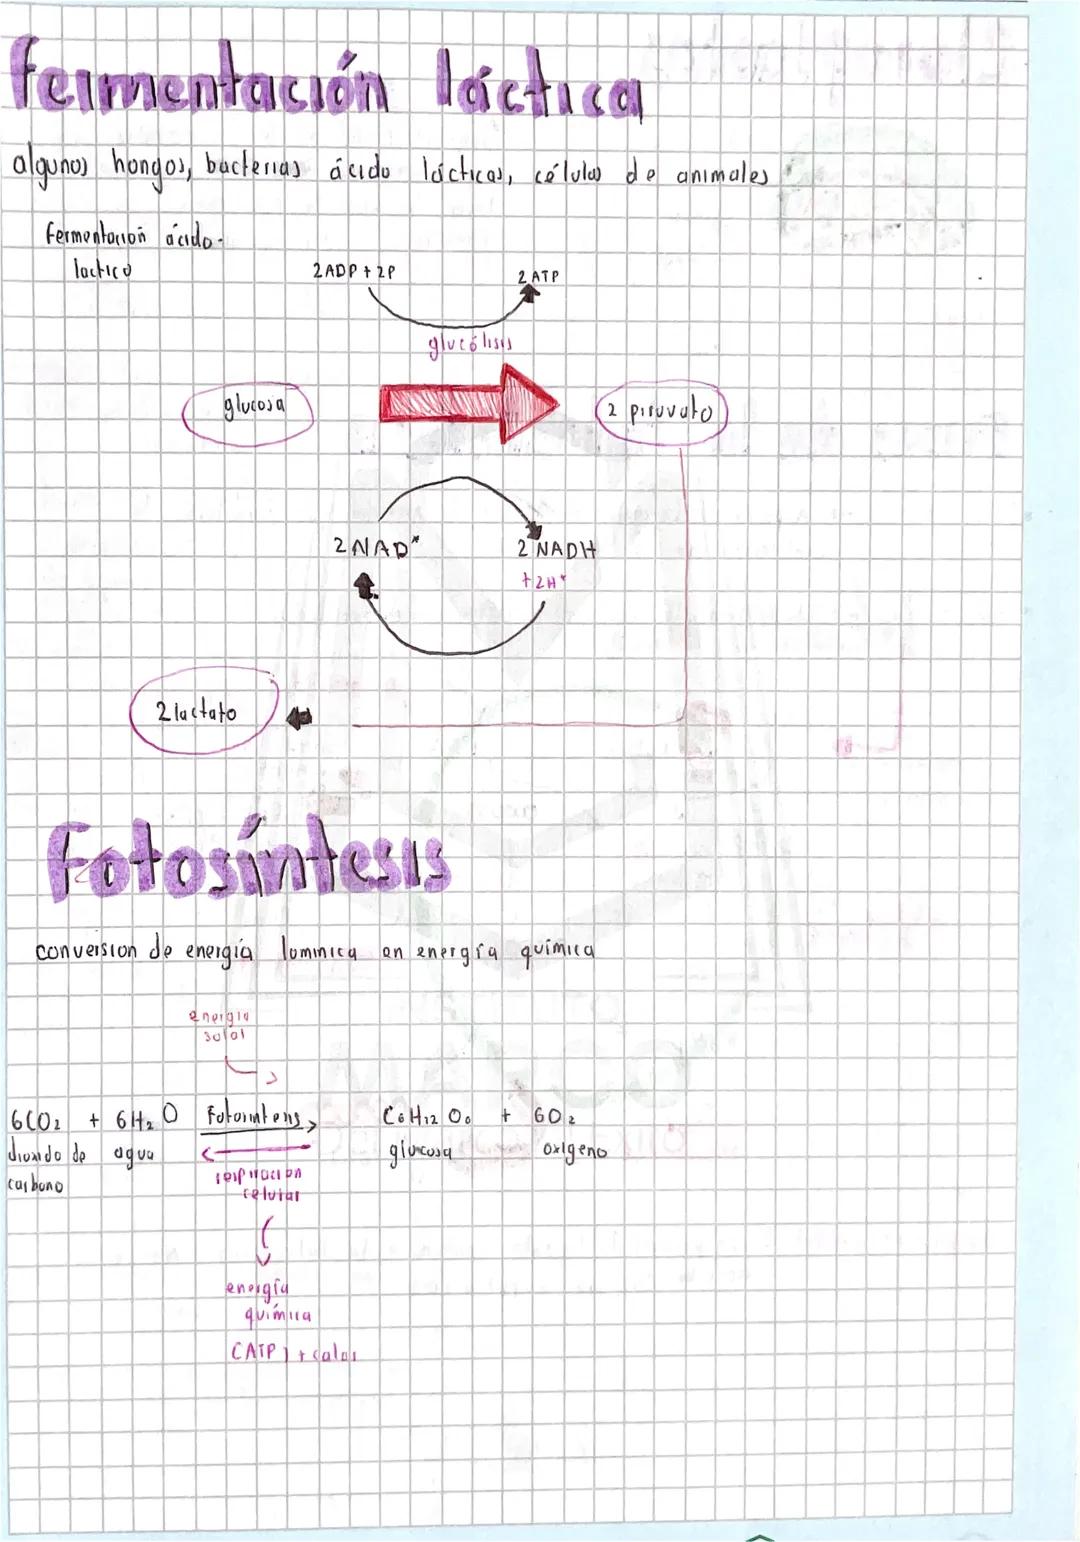 fermentación láctica
algunos hongos, bacterias ácido lácticas, células de animales
fermentación ácido-
lactico
2ADP + 2P 2 ATP
glucólisis
glucosa 2 piruvato
2 NAD* 2 NADH
+2H*
2 lactato
Fotosíntesis
conversion de energía lumnica en energía química
energia
solar
6CO2 + 6H2O Fotosintesis C6H12O6 + 6O2
dioxido de agua glucosa oxigeno
carbono
respiracion
celular
energía
química
(ATP) + calor